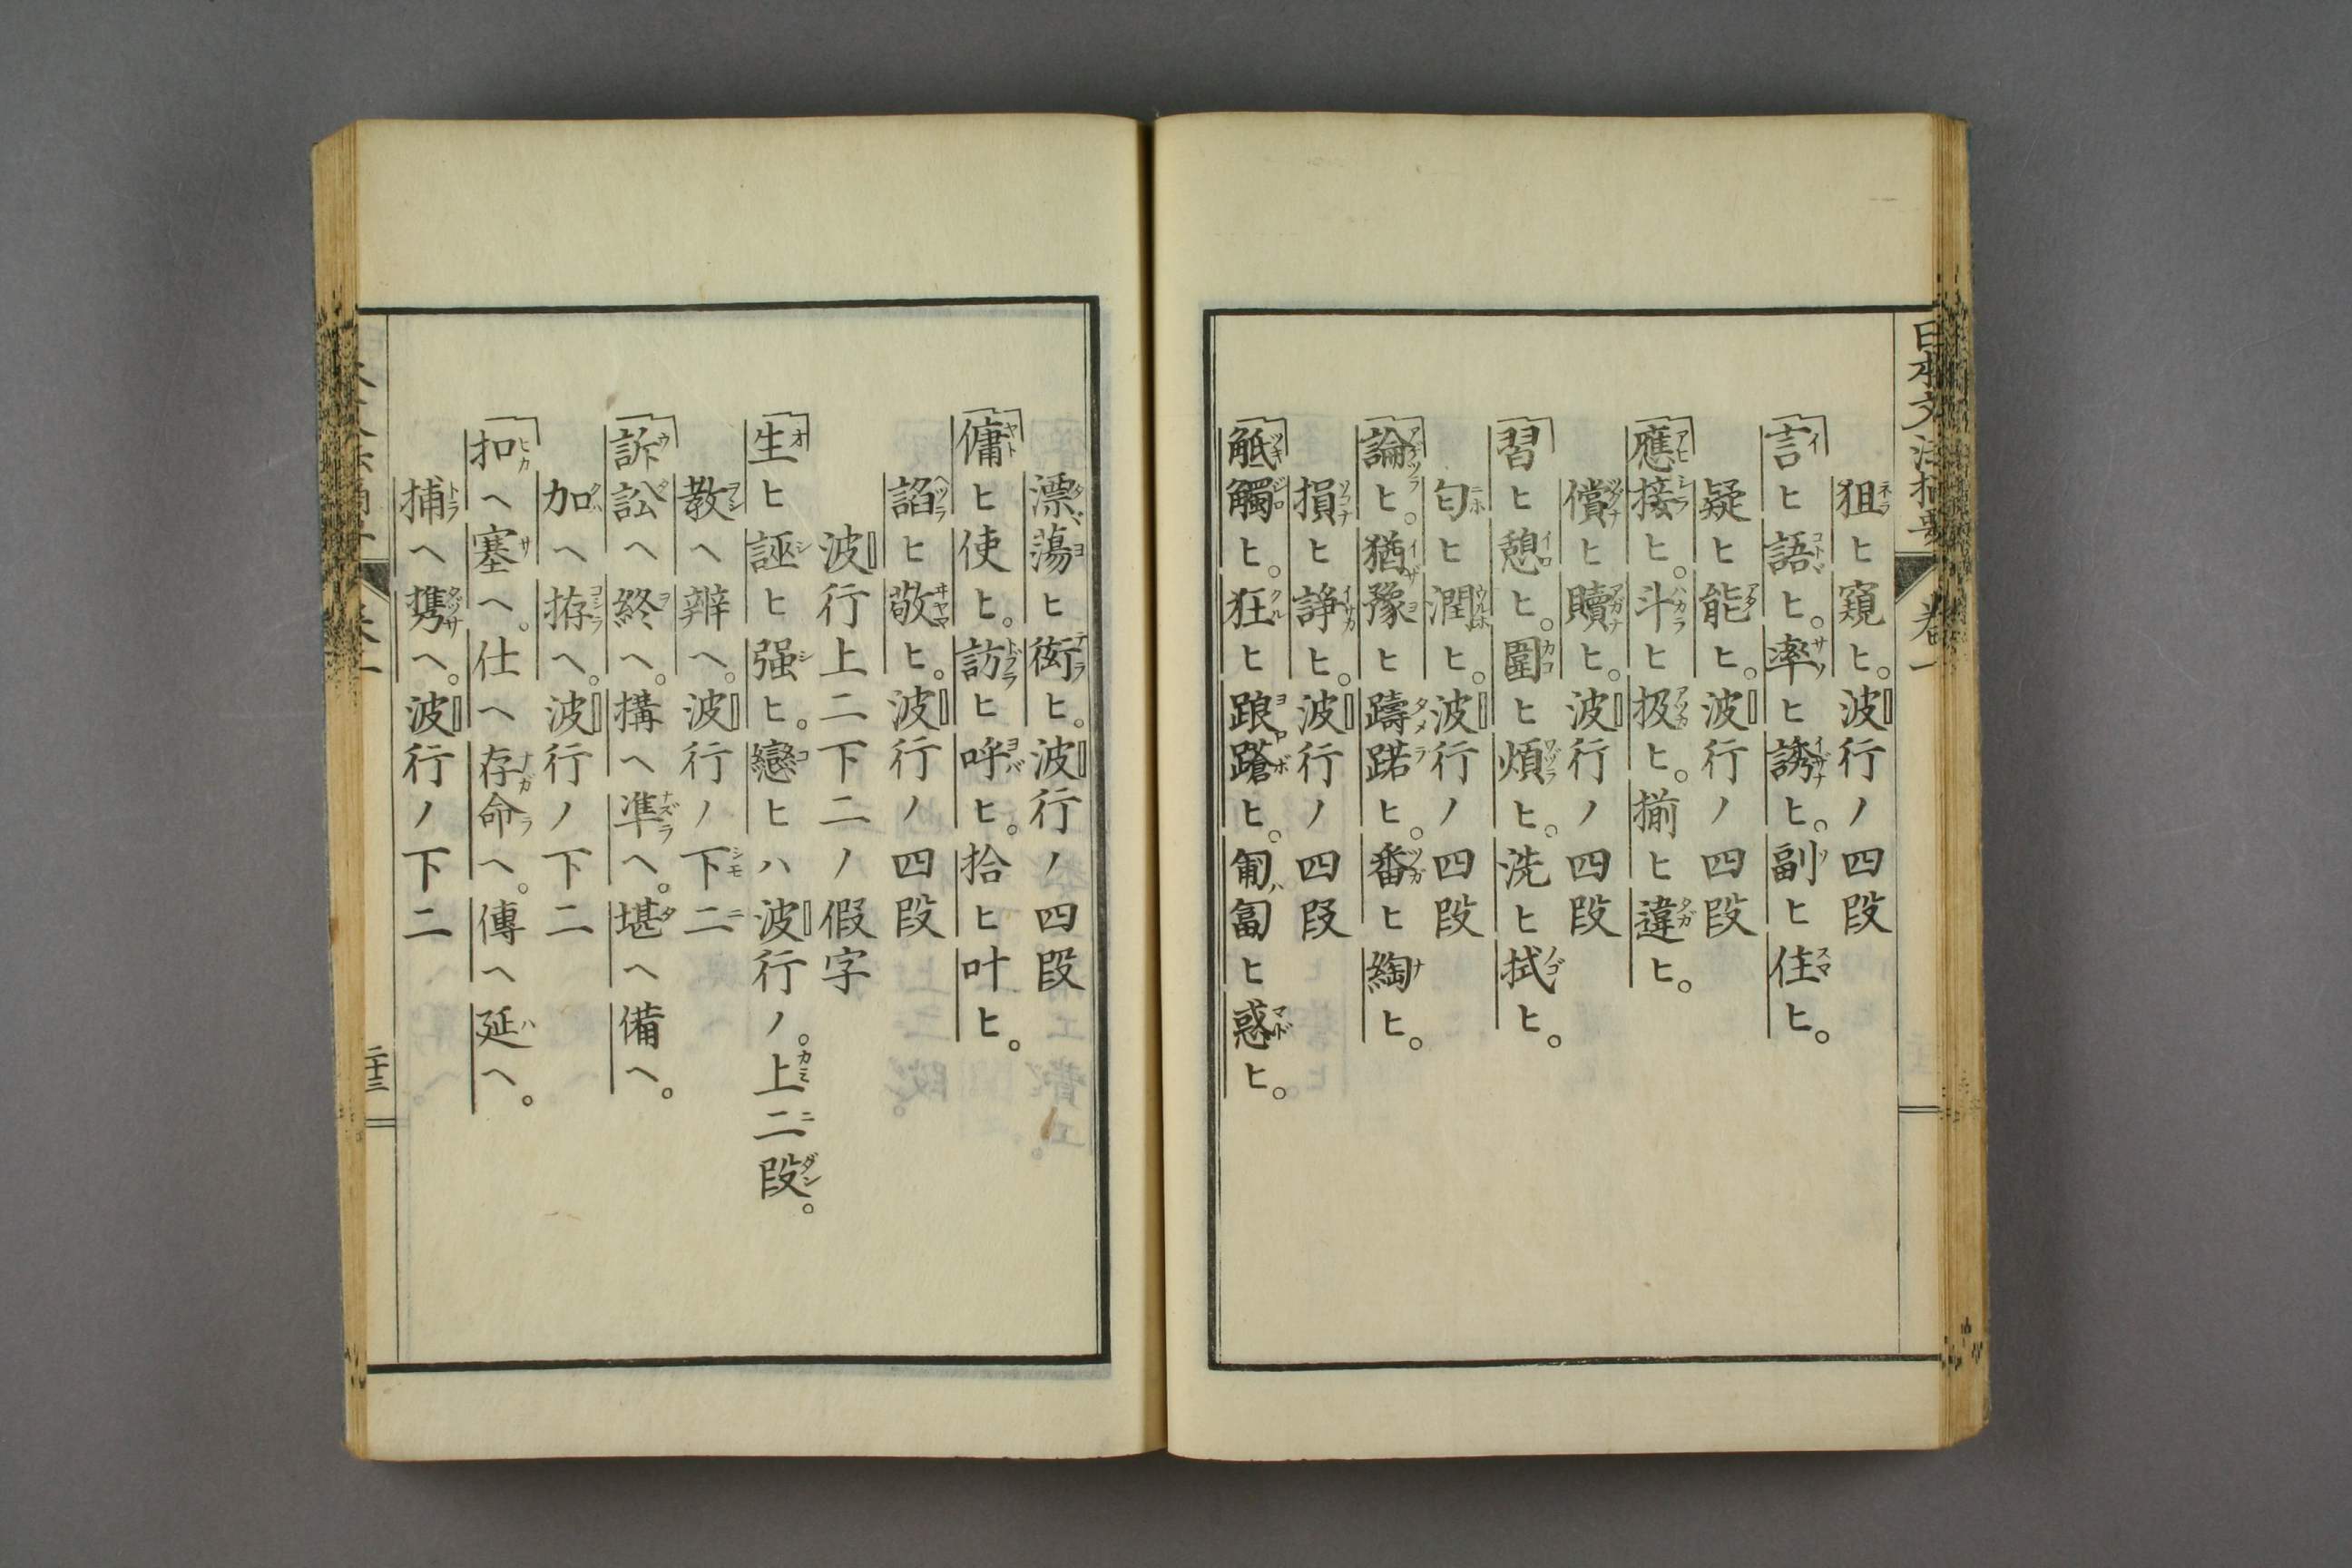 日本文法摘要 卷一
狙ヒ窺ヒ。波行ノ四段
言ヒ語ヒ。率ヒ誘ヒ。副ヒ住ヒ。
疑ヒ能ヒ。波行ノ四段
應接ヒ。斗ヒ扱ヒ。揃ヒ違ヒ。
償ヒ贖ヒ。波行ノ四段
習ヒ憩ヒ。圍ヒ煩ヒ。洗ヒ拭ヒ。
匂ヒ潤ヒ。波行ノ四段
論ヒ。猶豫ヒ躊躇ヒ。番ヒ綯ヒ。
損ヒ諍ヒ。波行ノ四段
觝觸ヒ。狂ヒ踉蹌ヒ。匍匐ヒ惑ヒ。
漂蕩ヒ衒ヒ。波行ノ四段
傭ヒ使ヒ。訪ヒ呼ヒ。拾ヒ叶ヒ。
諂ヒ敬ヒ。波行ノ四段
波行上二下二ノ假字
生ヒ誣ヒ强ヒ。戀ヒハ波行ノ。上二段。
教ヘ辨ヘ。波行ノ下二
訴訟ヘ終ヘ。構ヘ準ヘ。堪ヘ備ヘ。
加ヘ拵ヘ。波行ノ下二
扣ヘ塞ヘ。仕ヘ存命ヘ。傳ヘ延ヘ。
捕ヘ携ヘ。波行ノ下二
二十三